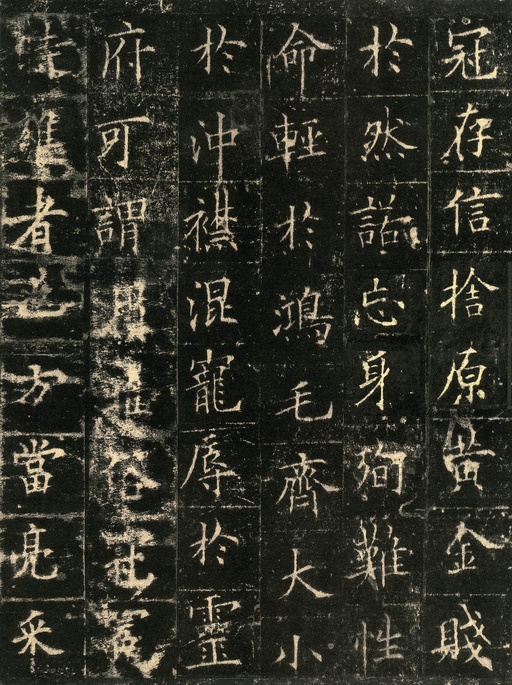 冠存信捨原黄金賤
於然諾忘身殉難性
命輕於鴻毛齊大小
於沖襟混寵辱於靈
府可謂俗
雄者也方當亮采